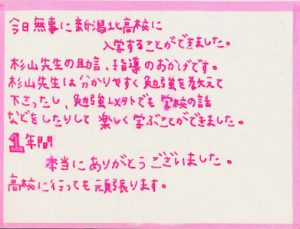 今日無事に新潟北高校に
入学することができました。
杉山先生の助言、指導のおかげです。
杉山先生は分かりやすく勉強を教えて
下さったし、勉強以外でも学校の話
などをしたりして楽しく学ぶことができました。
1年間
本当にありがとうございました。
高校に行っても頑張ります。